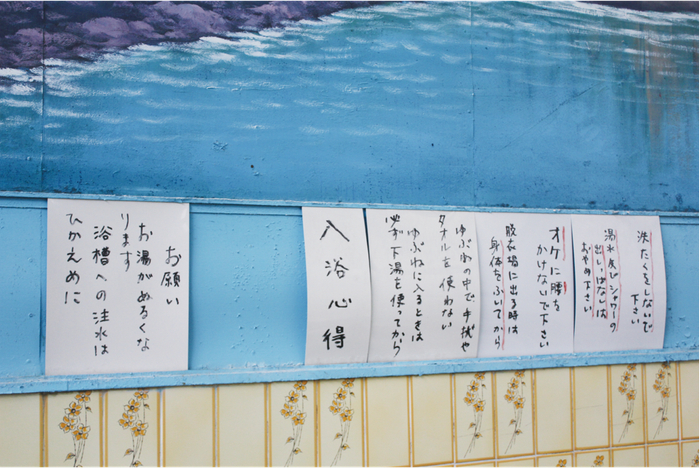 洗たくをしないで
下さい
湯水及びシャワーの
出しぱなしは
おやめ下さい
オケに腰を
かけないで下さい
脱衣場に出る時は
身体をふいてから
ゆぶねの中で手拭や
タオルを使わない
ゆぶねに入るときは
必ず下湯を使ってから
入浴心得
お願い
お湯がぬるくな
ります
浴槽への注水は
ひかえめに